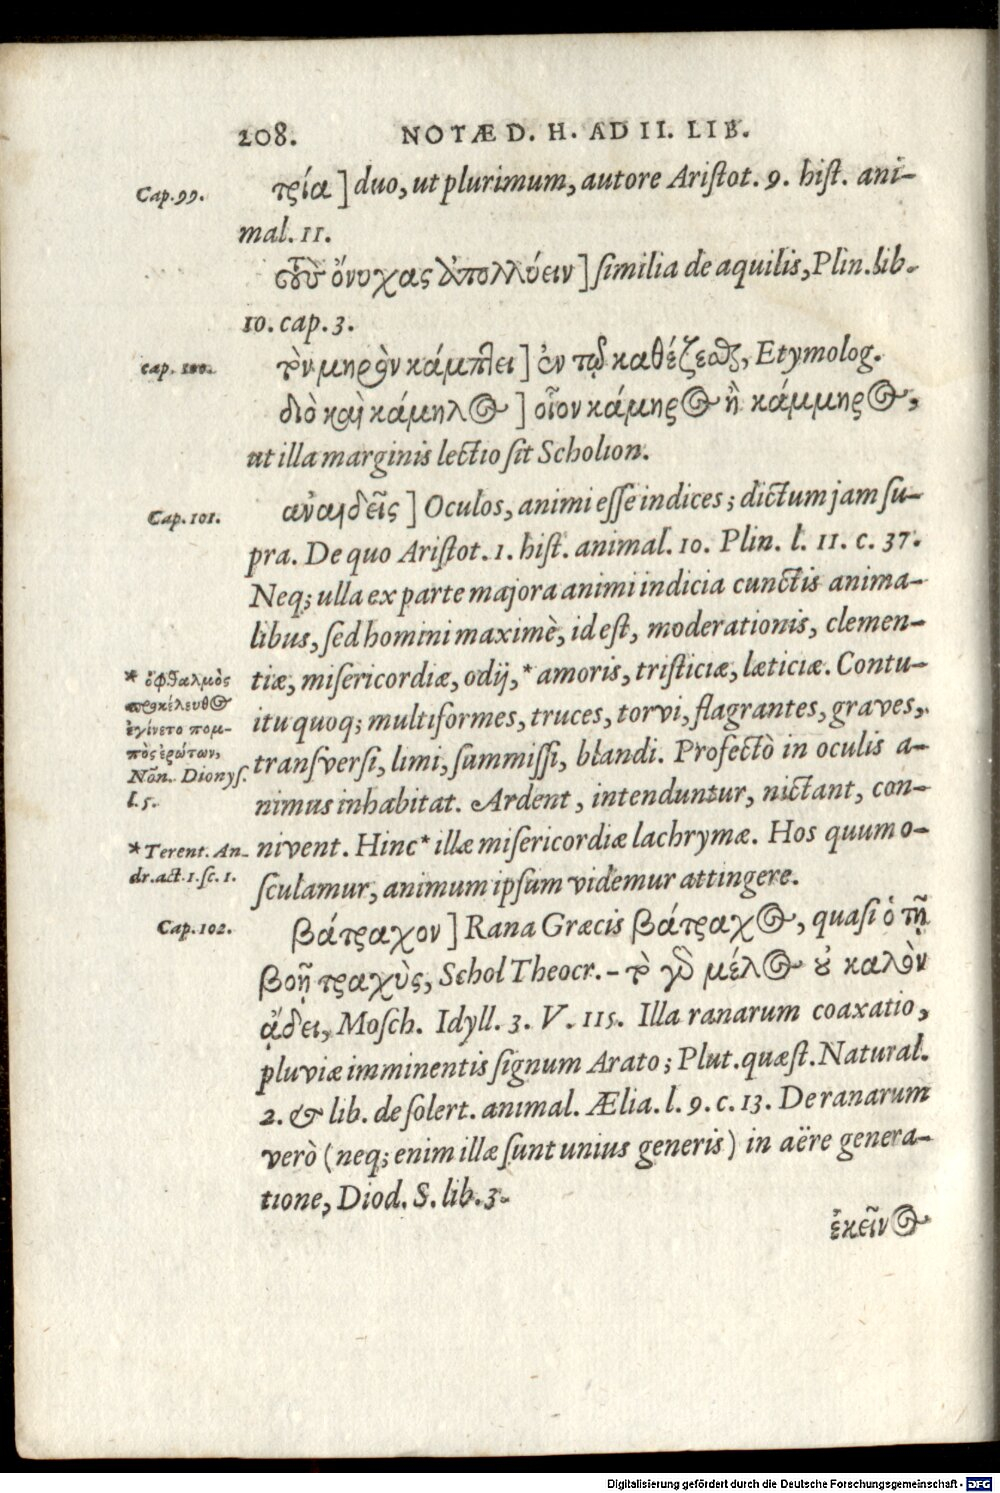 208. NOTÆ D. H. AD II. LIB.
Cap. 99.
τρία ] duo, ut plurimum, autore Aristot. 9. hist. ani-
mal. 11.
τοὺς ὄνυχας ἀπολλύειν ] similia de aquilis, Plin. lib.
10. cap. 3.
cap. 100.
τὸν μηρὸν κάμπτει ] ἐν τῷ καθέζεσθαι, Etymolog.
διὸ καὶ κάμηλος ] οἷον κάμηρος ἢ κάμμηρος,
ut illa marginis lectio sit Scholion.
Cap. 101.
ἀναιδεῖς ] Oculos, animi esse indices; dictum jam su-
pra. De quo Aristot. 1. hist. animal. 10. Plin. l. 11. c. 37.
Neq; ulla ex parte majora animi indicia cunctis anima-
libus, sed homini maximè, id est, moderationis, clemen-
tiæ, misericordiæ, odij, * amoris, tristiciæ, læticiæ. Contu-
itu quoq; multiformes, truces, torvi, flagrantes, graves,
transversi, limi, summissi, blandi. Profectò in oculis a-
nimus inhabitat. Ardent, intenduntur, nictant, con-
nivent. Hinc * illæ misericordiæ lachrymæ. Hos quum o-
sculamur, animum ipsum videmur attingere.
* ὀφθαλμὸς
προκέλευθος
ἐγίνετο πομ-
πὸς ἐρώτων,
Nōn. Dionys.
l. 5.
* Terent. An-
dr. act. 1. sc. 1.
Cap. 102.
βάτραχον ] Rana Græcis βάτραχος, quasi ὁ τῇ
βοῇ τραχὺς, Schol Theocr. - τὸ γὰρ μέλος οὐ καλὸν
ᾄδει, Mosch. Idyll. 3. V. 115. Illa ranarum coaxatio,
pluviæ imminentis signum Arato; Plut. quæst. Natural.
2. & lib. de solert. animal. Ælia. l. 9. c. 13. De ranarum
verò (neq; enim illæ sunt unius generis) in aëre genera-
tione, Diod. S. lib. 3.
ἐκεῖνος
Digitalisierung gefördert durch die Deutsche Forschungsgemeinschaft - DFG